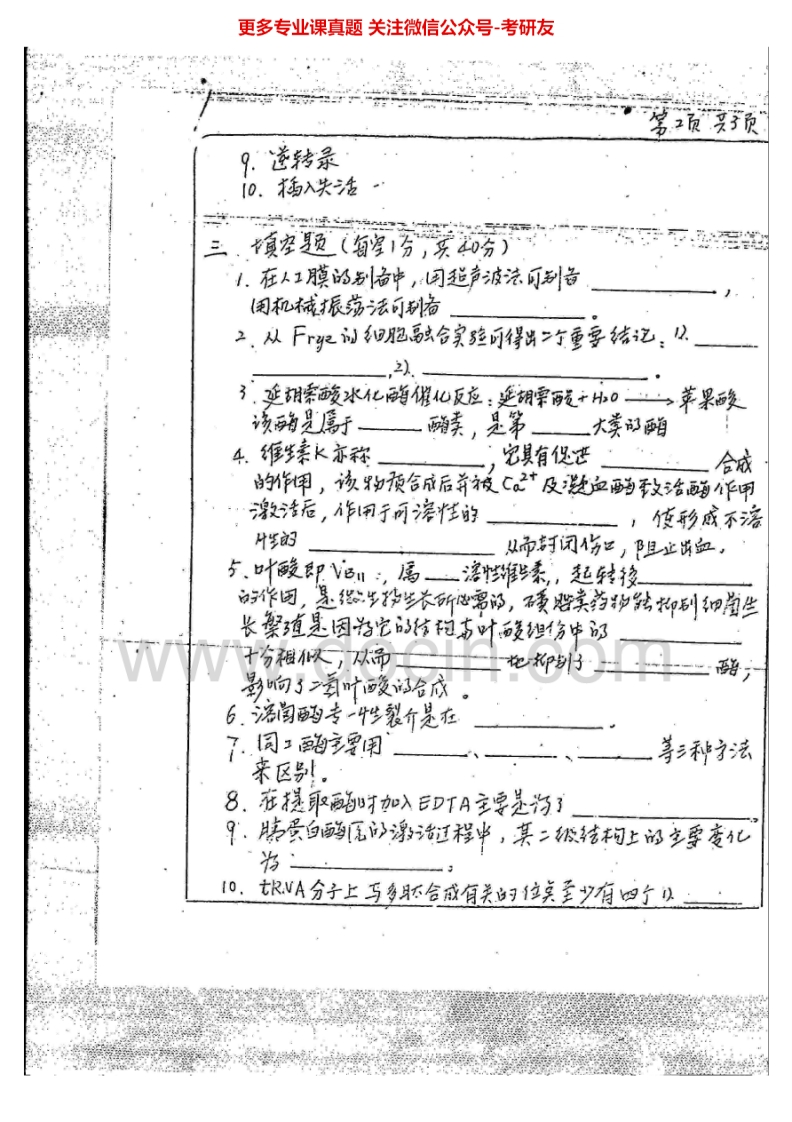 更多专业课真题 关注微信公众号-考研友
第2页 共3页
9. 逆转录
10. 插入失活
三. 填空题（每空1分，共40分）
1. 在人工膜的制备中，用超声波法可制备 ________，
用机械振荡法可制备 ________。
2. 从 Frye 的细胞融合实验可得出二个重要结论：1). ________
________，2). ________。
3. 延胡索酸水化酶催化反应：延胡索酸 + H2O ⟶ 苹果酸
该酶是属于 ________ 酶类，是第 ________ 大类的酶
4. 维生素K亦称 ________，它具有促进 ________ 合成
的作用，该物质合成后并被Ca2+及凝血酶致活酶作用
激活后，作用于可溶性的 ________，使形成不溶
性的 ________ 从而封闭伤口，阻止出血。
5. 叶酸即VB11，属 ____ 溶性维生素，起转移 ________
的作用，是微生物生长所必需的，磺胺类药物能抑制细菌生
长繁殖是因为它的结构与叶酸组份中的 ________
十分相似，从而 ________ 地抑制了 ________ 酶，
影响了二氢叶酸的合成。
6. 溶菌酶专一性裂介是在 ________。
7. 同工酶主要用 ________、________、________ 等三种方法
来区别。
8. 在提取酶时加入EDTA主要是为了 ________。
9. 胰蛋白酶原的激活过程中，其二级结构上的主要变化
为 ________。
10. tRNA分子上与多肽合成有关的位点至少有四个 1). ________
www.docin.com